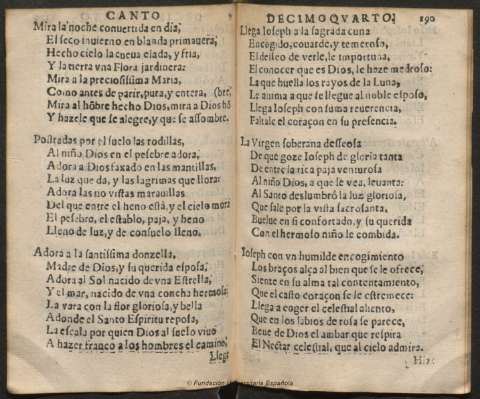 CANTO
Mira la noche conuertida en dia,
El seco inuierno en blanda primauera,
Hecho cielo la cueua elada, y fria,
Y la tierra vna Flora jardinera:
Mira a la preciosissima Maria,
Como antes de parir, pura, y entera, (bre,
Mira al hõbre hecho Dios, mira a Dios hõ
Y hazele que se alegre, y que se assombre.
Postradas por el suelo las rodillas,
Al niño Dios en el pesebre adora,
Adora a Dios faxado en las mantillas,
La luz que da, y las lagrimas que llora:
Adora las no vistas marauillas
Del que entre el heno està, y el cielo mora
El pesebro, el establo, paja, y heno
Lleno de luz, y de consuelo lleno.
Adora a la santissima donzella,
Madre de Dios, y su querida esposa,
Adora al Sol nacido de vna Estrella,
Y el mar, nacido de vna concha hermosa:
La vara con la flor gloriosa, y bella
Adonde el Santo Espiritu reposa,
La escala por quien Dios al suelo vino
A hazer franco a los hombres el camino,
Llega
DECIMOQVARTO. 190
Llega Ioseph a la sagrada cuna
Encogido, couarde, y temeroso,
El desseo de verle, le importuna,
El conocer que es Dios, le haze medroso:
La que huella los rayos de la Luna,
Le anima a que se llegue al noble esposo,
Llega Ioseph con suma reuerencia,
Faltale el coraçon en su presencia.
La Virgen soberana desseosa
De que goze Ioseph de gloria tanta
De entre la rica paja venturosa
Al niño Dios, a que le vea, leuanta:
Al Santo deslumbrò la luz gloriosa,
Que sale por la vista sacrosanta,
Buelue en si confortado, y su querida
Con el hermoso niño le combida.
Ioseph con vn humilde encogimiento
Los braços alça al bien que se le ofrece,
Siente en su alma tal contentamiento,
Que el casto coraçon se le estremece:
Llega a coger el celestial aliento,
Que en los labios de rosa se parece,
Beue de Dios el ambar que respira
El Nectar celestial, que al cielo admira.
© Fundación Universitaria Española